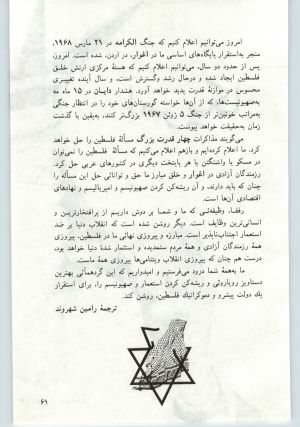 امروز می‌توانیم اعلام کنیم که جنگ الکرامه در ۲۱ مارس ۱۹۶۸،
منجر به‌استقرار پایگاه‌های اساسی ما در اغوار، در اردن، شده است. امروز،
پس از حدود دو سال، می‌توانیم اعلام کنیم که هستهٔ مرکزی ارتش خلق
فلسطین ایجاد شده و درحال رشد وگسترش است، و سال آینده تغییری
محسوس در موازنهٔ قدرت پدید خواهد آورد. هشدار دایان در ۱۵ ماه مه
به‌صهیونیست‌ها، که از آن‌ها خواسته گورستان‌های خود را در انتظار جنگی
به‌مراتب خونین‌تر از جنگ ۵ ژوئن ۱۹۶۷ بزرگ‌تر کنند، به‌یقین با گذشت
زمان به‌حقیقت خواهد پیوست.
می‌گویند مذاکرات چهار قدرت بزرگ مسألهٔ فلسطین را حل خواهد
کرد. ما اعلام کرده‌ایم و بازهم اعلام می‌کنیم که مسألهٔ فلسطین را نمی‌توان
در مسکو یا واشنگتن یا هر پایتخت دیگری در کشورهای غربی حل کرد.
رزمندگان آزادی در اغوار و خلق مبارز ما حق و توانائی حل این مسأله را
چنان که باید دارند، و آن ریشه‌کن کردن صهیونیسم و امپریالیسم و نهادهای
اقتصادی آن‌ها است.
رفقا، وظیفه‌ئی که ما و شما بر دوش داریم از پرافتخارترین و
انسانی‌ترین وظایف است. دیگر روشن شده است که انقلاب دنیا بر ضد
استعمار اجتناب‌ناپذیر است. مبارزه و پیروزی نهائی ما در فلسطین، پیروزی
همهٔ رزمندگان آزادی و همهٔ مردم ستمدیده و استثمار شدهٔ دنیا خواهد بود،
درست هم چنان که پیروزی انقلاب ویتنامی‌ها پیروزی همهٔ ماست.
ما به‌همهٔ شما درود می‌فرستیم و امیدواریم که این گردهمآئی بهترین
دستاویز رویاروئی و ریشه‌کن کردن استعمار و صهیونیسم را، برای استقرار
یك دولت پیشرو و دموکراتیك فلسطین، روشن کند.
ترجمهٔ رامین شهروند
۶۱